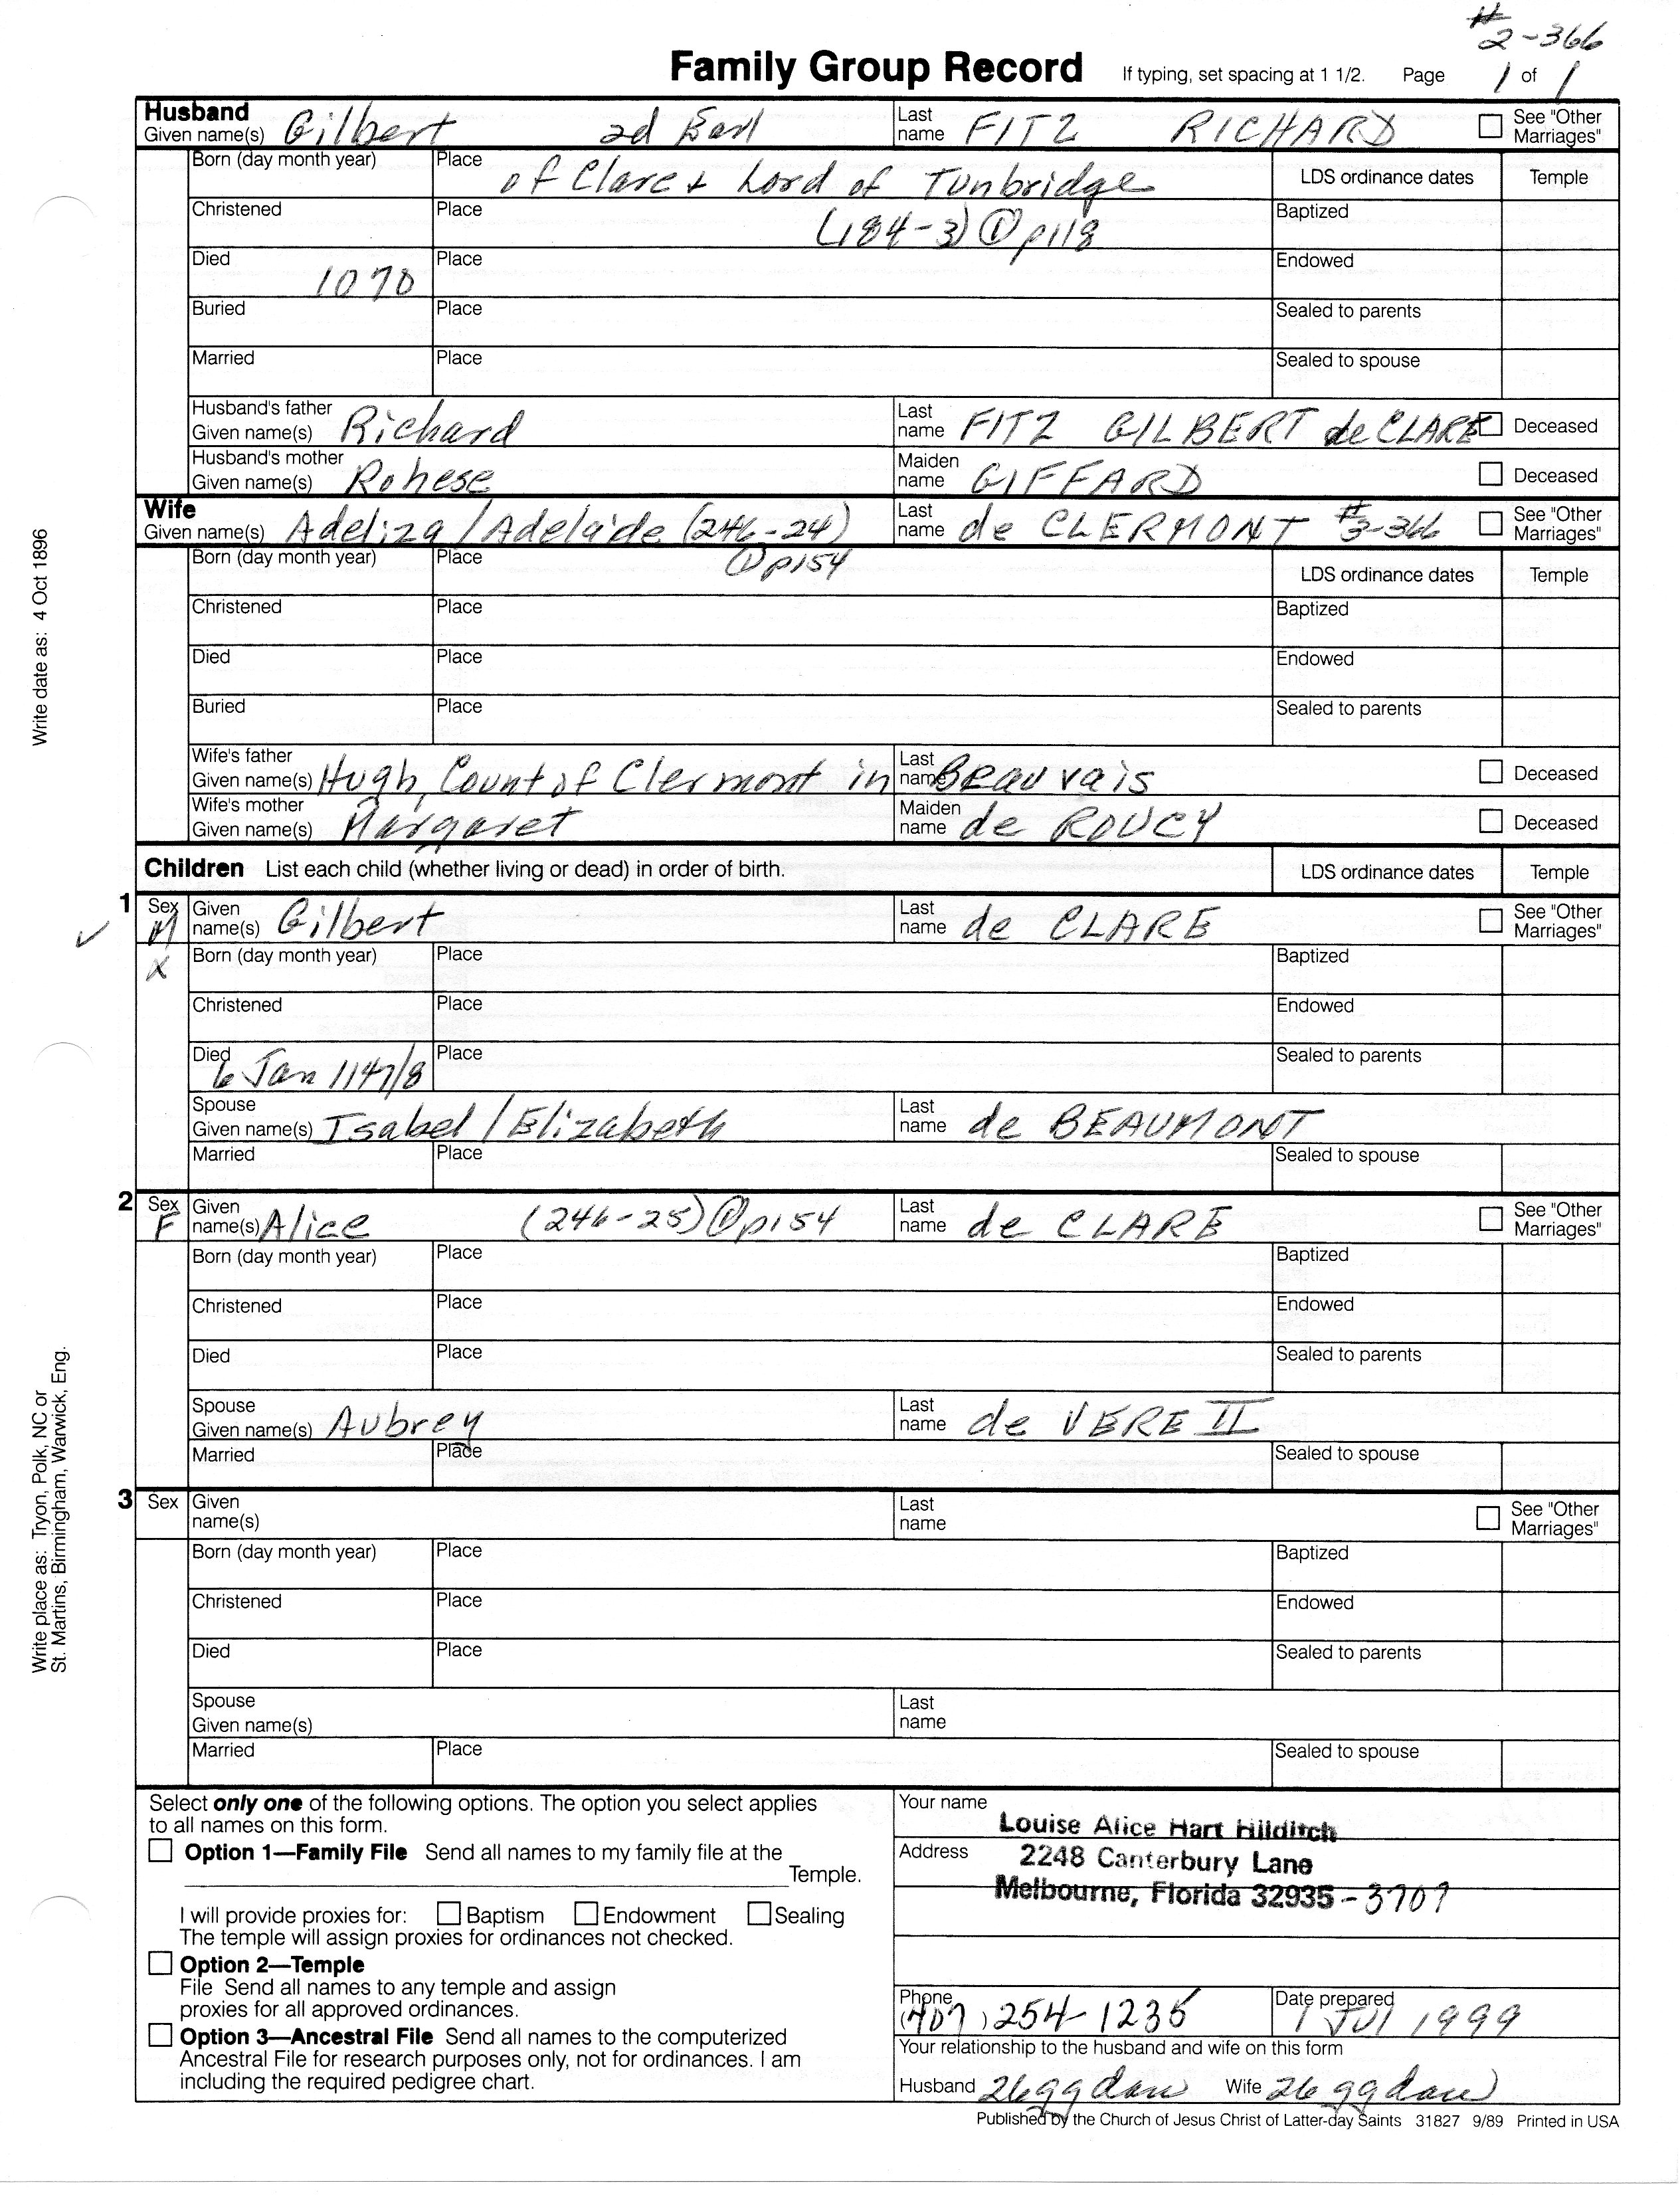 # 2-366
Family Group Record If typing, set spacing at 1 1/2. Page 1 of 1
Husband
Given name(s) Gilbert 2d Earl Last name FITZ RICHARD See "Other Marriages"
Born (day month year) Place of Clare & Lord of Tunbridge LDS ordinance dates Temple
Christened Place (184-3) ① p118 Baptized
Died 1070 Place Endowed
Buried Place Sealed to parents
Married Place Sealed to spouse
Husband's father Given name(s) Richard Last name FITZ GILBERT de CLARE Deceased
Husband's mother Given name(s) Rohese Maiden name GIFFARD Deceased
Wife
Given name(s) Adeliza/Adelaide (246-24) Last name de CLERMONT #3-366 See "Other Marriages"
Born (day month year) Place ① p154 LDS ordinance dates Temple
Christened Place Baptized
Died Place Endowed
Buried Place Sealed to parents
Wife's father Given name(s) Hugh, Count of Clermont in Last name Beauvais Deceased
Wife's mother Given name(s) Margaret Maiden name de ROUCY Deceased
Children List each child (whether living or dead) in order of birth. LDS ordinance dates Temple
1 Sex M Given name(s) Gilbert Last name de CLARE See "Other Marriages"
✓ X Born (day month year) Place Baptized
Christened Place Endowed
Died 6 Jan 1147/8 Place Sealed to parents
Spouse Given name(s) Isabel/Elizabeth Last name de BEAUMONT
Married Place Sealed to spouse
2 Sex F Given name(s) Alice (246-25) ① p154 Last name de CLARE See "Other Marriages"
Born (day month year) Place Baptized
Christened Place Endowed
Died Place Sealed to parents
Spouse Given name(s) Aubrey Last name de VERE II
Married Place Sealed to spouse
3 Sex Given name(s) Last name See "Other Marriages"
Born (day month year) Place Baptized
Christened Place Endowed
Died Place Sealed to parents
Spouse Given name(s) Last name
Married Place Sealed to spouse
Select only one of the following options. The option you select applies
to all names on this form.
Option 1—Family File Send all names to my family file at the
Temple.
I will provide proxies for: Baptism Endowment Sealing
The temple will assign proxies for ordinances not checked.
Option 2—Temple
File Send all names to any temple and assign
proxies for all approved ordinances.
Option 3—Ancestral File Send all names to the computerized
Ancestral File for research purposes only, not for ordinances. I am
including the required pedigree chart.
Your name Louise Alice Hart Hilditch
Address 2248 Canterbury Lane
Melbourne, Florida 32935-3707
Phone (407) 254-1235 Date prepared 1 Jul 1999
Your relationship to the husband and wife on this form
Husband 26 gg dau Wife 26 gg dau
Published by the Church of Jesus Christ of Latter-day Saints 31827 9/89 Printed in USA
Write date as: 4 Oct 1896
Write place as: Tryon, Polk, NC or
St. Martins, Birmingham, Warwick, Eng.